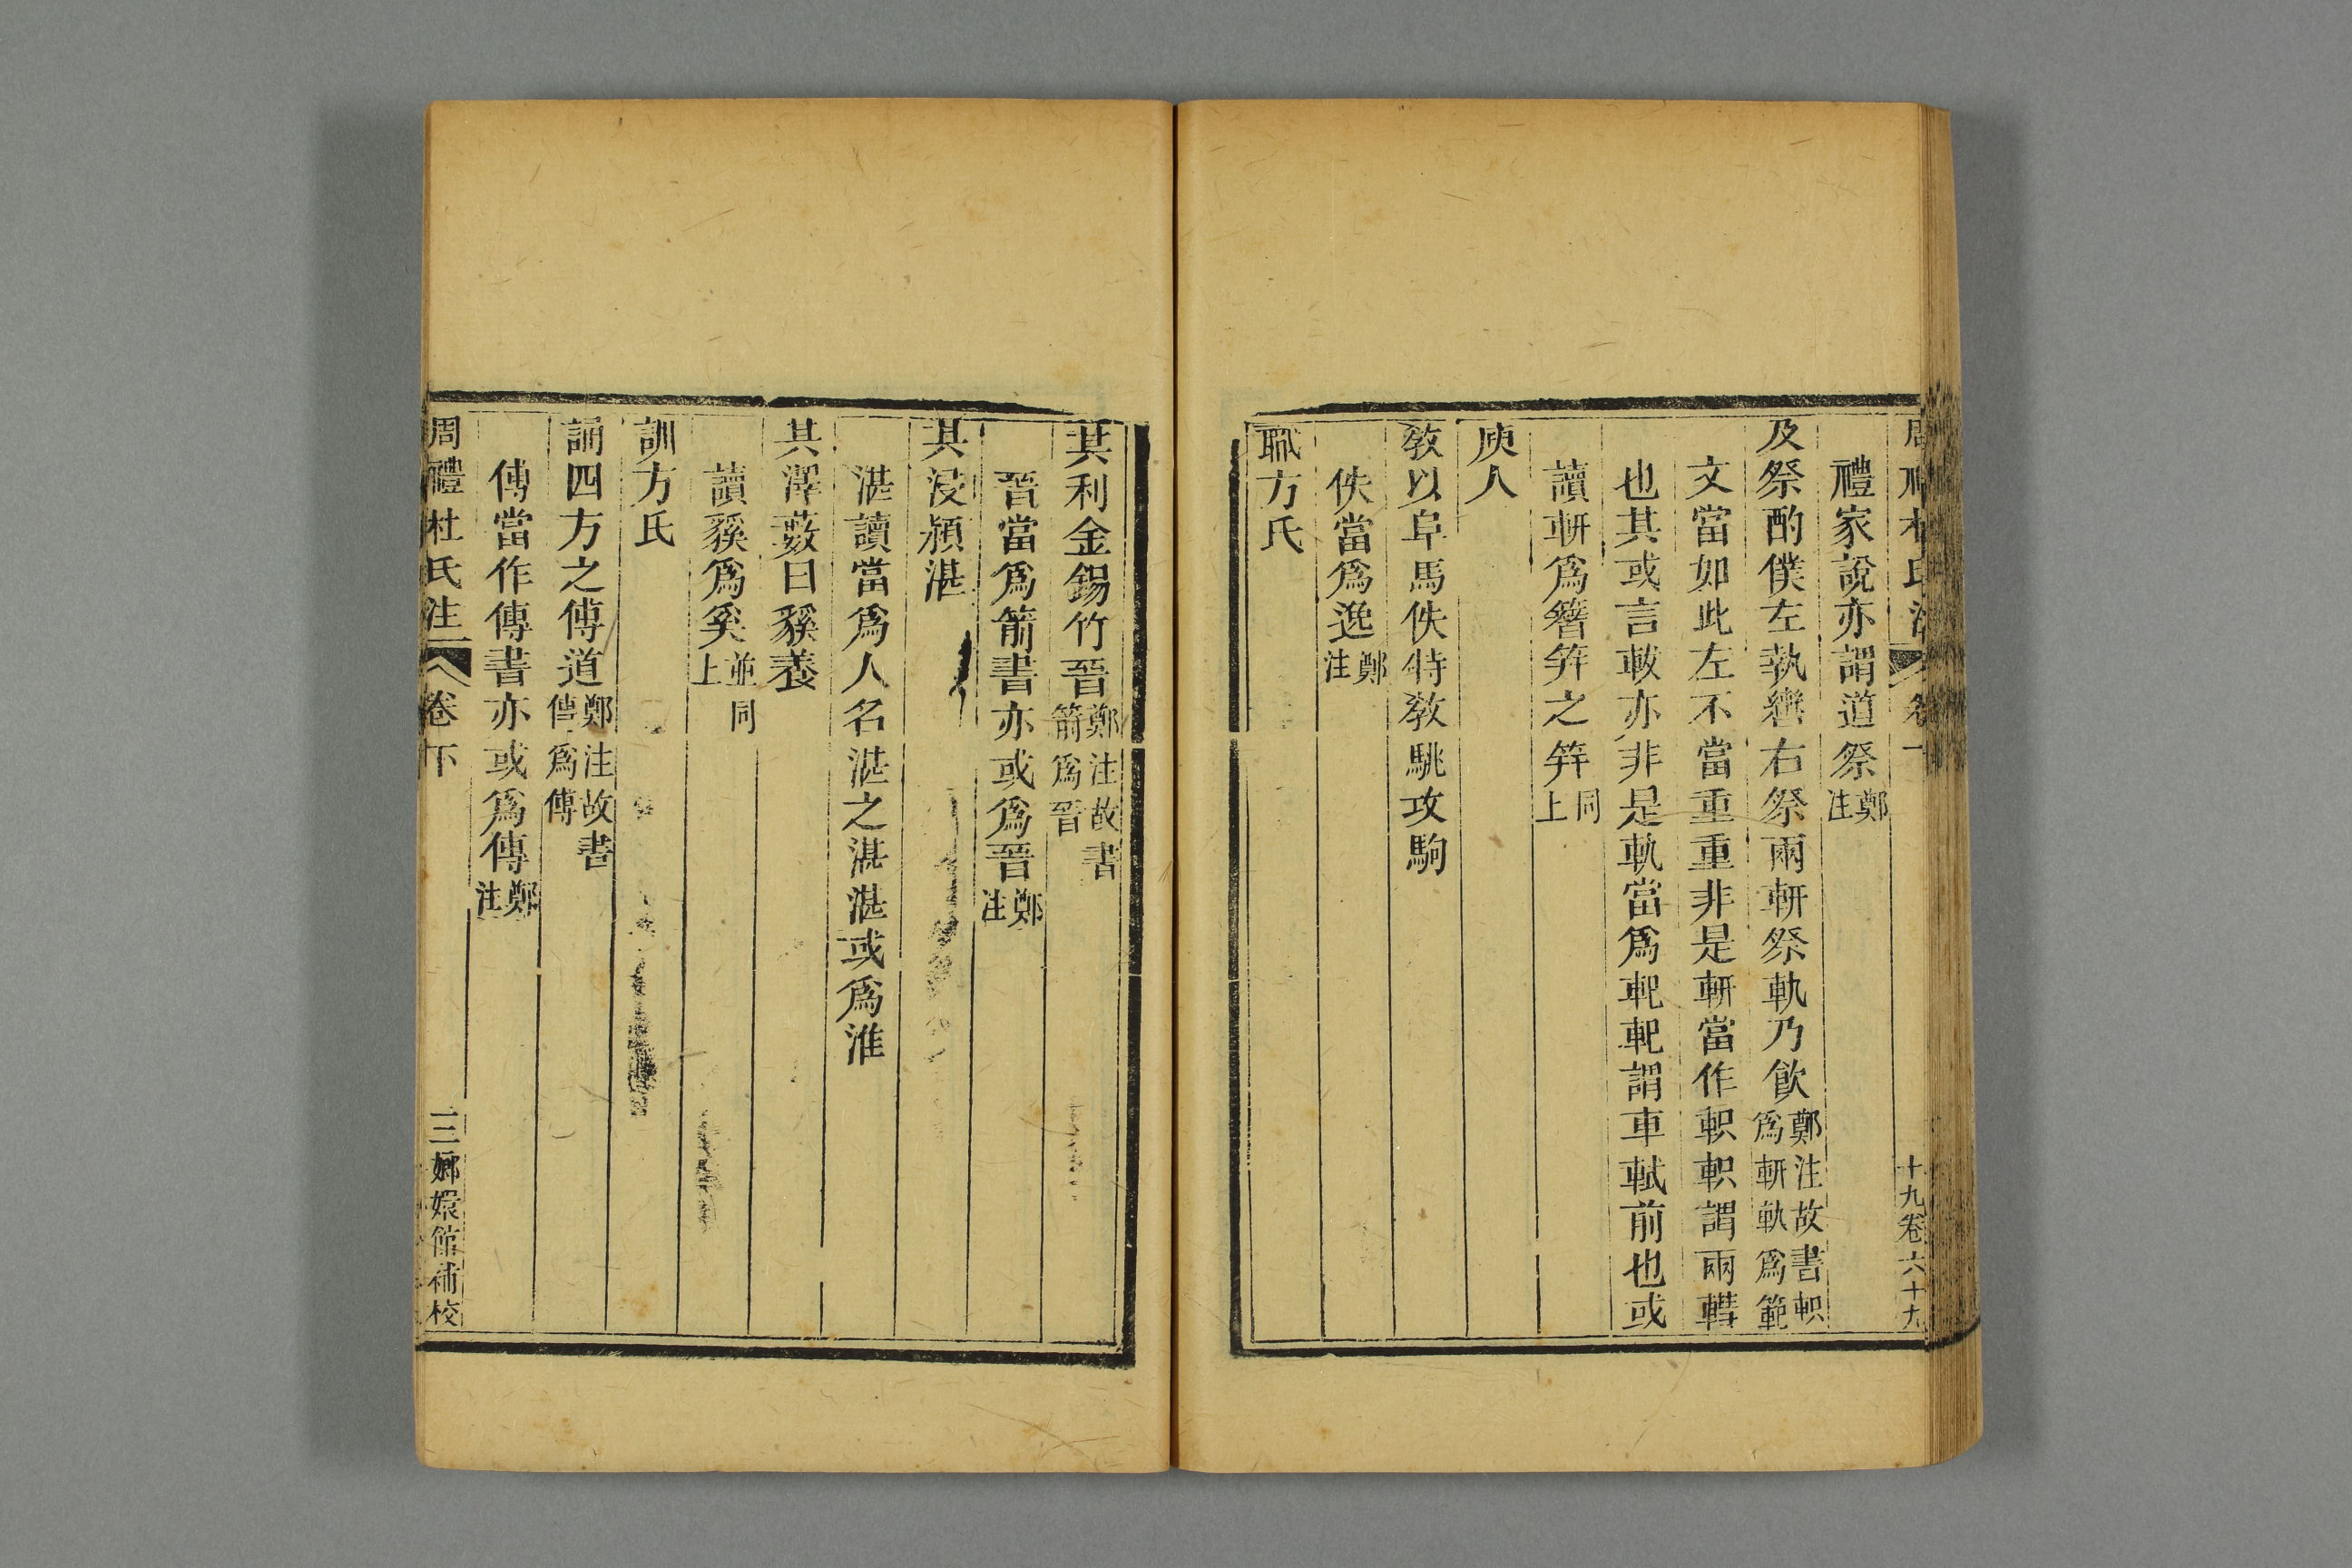 十九卷六十九
禮家說亦謂道祭鄭注
及祭酌僕左執轡右祭兩軿祭軌乃飮鄭注故書軹爲軿軌爲範
文當如此左不當重重非是軿當作軹軹謂兩轊
也其或言軷亦非是軌當爲軓軓謂車軾前也或
讀軿爲簪笄之笄同上
庾人
敎以阜馬佚特敎駣攻駒
佚當爲逸鄭注
職方氏
其利金錫竹晉鄭注故書箭爲晉
晉當爲箭書亦或爲晉鄭注
其浸潁湛
湛讀當爲人名湛之湛湛或爲淮
其澤藪曰貕養
讀貕爲奚並同上
訓方氏
誦四方之傳道鄭注故書傳爲傅
傳當作傳書亦或爲傳鄭注
周禮杜氏注 卷下 三 嫏嬛館補校